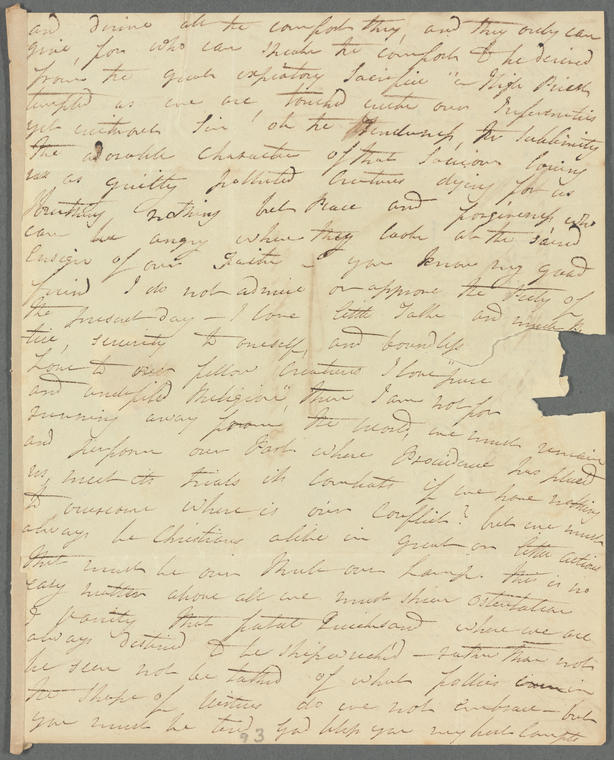 and divine all the comfort they, and they only can
give, for who can speak the comfort to be derived
from the great expiatory Sacrifice "a High Priest
tempted as we are touched with our Infirmities
yet without Sin! oh the Tenderness, the Sublimity
the adorable character of that Saviour loving
us as guilty polluted Creatures dying for us
breathing nothing but Peace and forgiveness, who
can be angry when they look at the sacred
Ensign of our Faith – you know my good
friend I do not admire or approve the Piety of
the present day – I love little Talk and much
severity to oneself, and boundless
Love to our fellow Creatures I love "pure
and undefiled Religion", then I am not for
running away from the world, we must remain
and perform our Part where Providence has placed
us, meet its trials its combats if we have nothing
to overcome where is our Conflict? but we must
always be Christians alike in great or little actions
that must be our Rule our Lamp. this is no
easy matter above all we must shun ostentation
& vanity that fatal Quicksand where we are
always destined to be shipwrecked – rather than not
be seen not be talked of what follies in
the shape of Virtues do we not embrace – but
you must be tired God bless you my best Compts
93